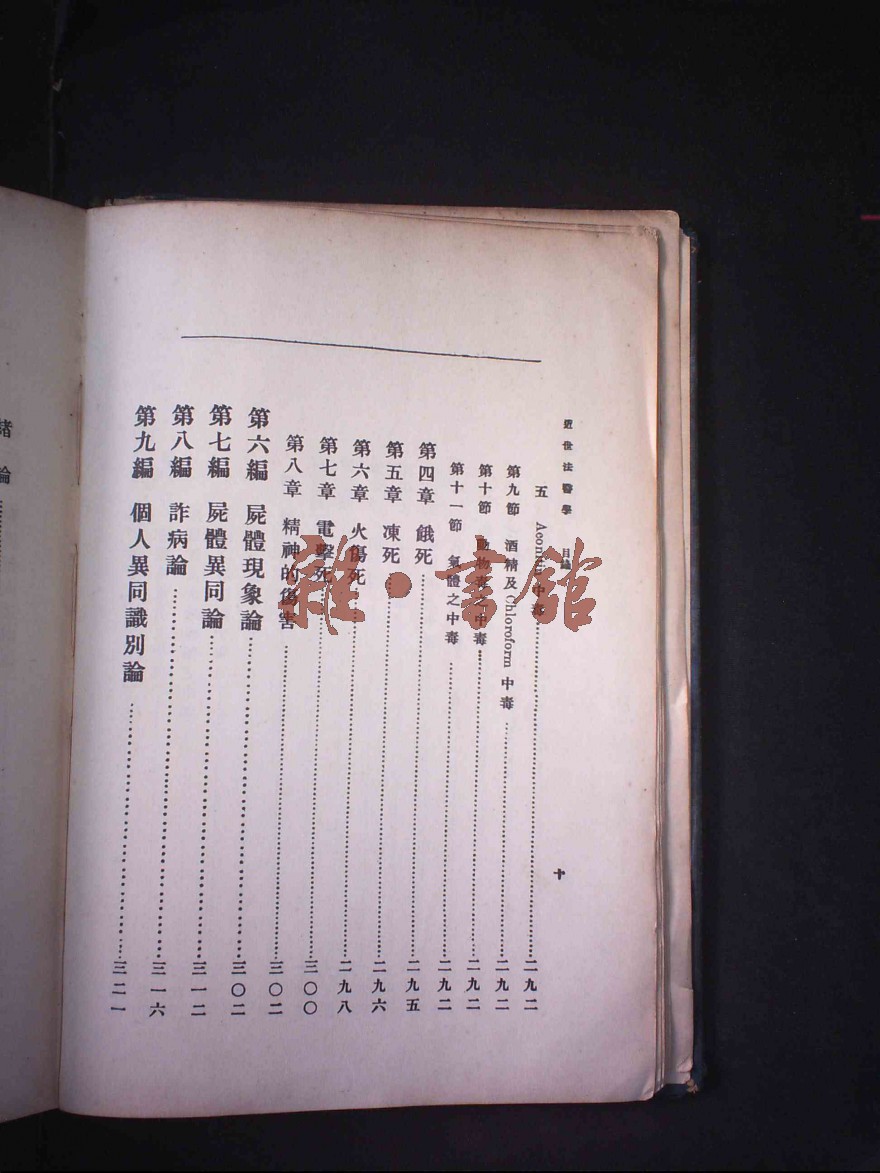 近世法醫學 目錄
十
五 Aconitin 中毒……二九二
第九節 酒精及Chloroform 中毒……二九二
第十節 動物毒之中毒……二九二
第十一節 氣體之中毒……二九二
第四章 餓死……二九五
第五章 凍死……二九六
第六章 火傷死……二九八
第七章 電擊死……三〇〇
第八章 精神的傷害……三〇二
第六編 屍體現象論……三〇二
第七編 屍體異同論……三一二
第八編 詐病論……三一六
第九編 個人異同識別論……三二一
論……
雜·書館